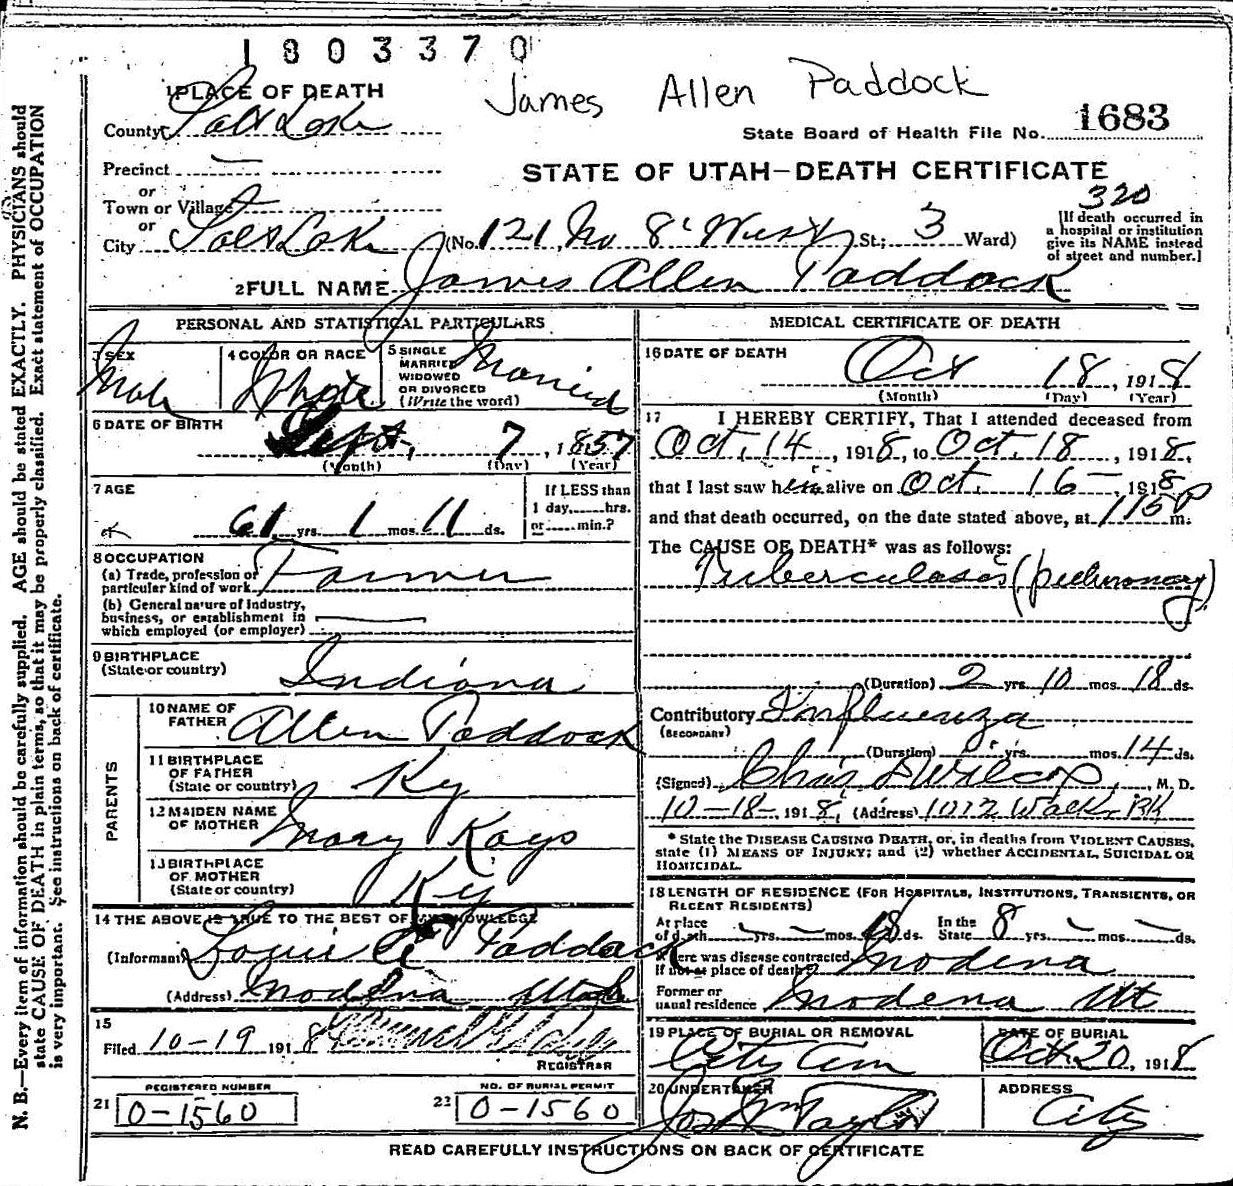 1803370
James Allen Paddock
1 PLACE OF DEATH
County Salt Lake
State Board of Health File No. 1683
Precinct —
STATE OF UTAH—DEATH CERTIFICATE
or
Town or Village —
320
or
City Salt Lake (No. 121 No 8' West St.; 3 Ward)
[If death occurred in
a hospital or institution
give its NAME instead
of street and number.]
2 FULL NAME James Allen Paddock
PERSONAL AND STATISTICAL PARTICULARS
3 SEX
Male
4 COLOR OR RACE
White
5 SINGLE
MARRIED
WIDOWED
OR DIVORCED
(Write the word)
Married
6 DATE OF BIRTH
Sept. 7, 1857
(Month) (Day) (Year)
7 AGE
61 yrs. 1 mos. 11 ds.
If LESS than
1 day,......hrs.
or ......min.?
8 OCCUPATION
(a) Trade, profession or
particular kind of work Farmer
(b) General nature of Industry,
business, or establishment in
which employed (or employer)
9 BIRTHPLACE
(State or country) Indiana
PARENTS
10 NAME OF
FATHER Allen Paddock
11 BIRTHPLACE
OF FATHER
(State or country) Ky
12 MAIDEN NAME
OF MOTHER Mary Kays
13 BIRTHPLACE
OF MOTHER
(State or country) Ky
14 THE ABOVE IS TRUE TO THE BEST OF MY KNOWLEDGE
(Informant) Louis A Paddock
(Address) Modena Utah
15
Filed 10-19 1918
REGISTRAR
REGISTERED NUMBER
21 0-1560
NO. OF BURIAL PERMIT
22 0-1560
MEDICAL CERTIFICATE OF DEATH
16 DATE OF DEATH
Oct 18, 1918
(Month) (Day) (Year)
17 I HEREBY CERTIFY, That I attended deceased from
Oct. 14, 1918, to Oct. 18, 1918,
that I last saw him alive on Oct. 16-, 1918
and that death occurred, on the date stated above, at 115 P m.
The CAUSE OF DEATH* was as follows:
Tuberculosis (pulmonary)
(Duration) 2 yrs. 10 mos. 18 ds.
Contributory Influenza
(SECONDARY)
(Duration) yrs. mos. 14 ds.
(Signed) Chas D Wilcox, M. D.
10-18-, 1918, (Address) 1012 Walk. Bk
* State the DISEASE CAUSING DEATH, or, in deaths from VIOLENT CAUSES,
state (1) MEANS OF INJURY; and (2) whether ACCIDENTAL, SUICIDAL OR
HOMICIDAL.
18 LENGTH OF RESIDENCE (FOR HOSPITALS, INSTITUTIONS, TRANSIENTS, OR
RECENT RESIDENTS)
At place
of death - yrs. - mos. 18 ds. In the
State 8 yrs. - mos. - ds.
Where was disease contracted,
If not at place of death? Modena
Former or
usual residence Modena Ut
19 PLACE OF BURIAL OR REMOVAL
City Cem
DATE OF BURIAL
Oct. 20, 1918
20 UNDERTAKER
Jos Wm Taylor
ADDRESS
City
READ CAREFULLY INSTRUCTIONS ON BACK OF CERTIFICATE
N. B.—Every item of information should be carefully supplied. AGE should be stated EXACTLY. PHYSICIANS should
state CAUSE OF DEATH in plain terms, so that it may be properly classified. Exact statement of OCCUPATION
is very important. See instructions on back of certificate.